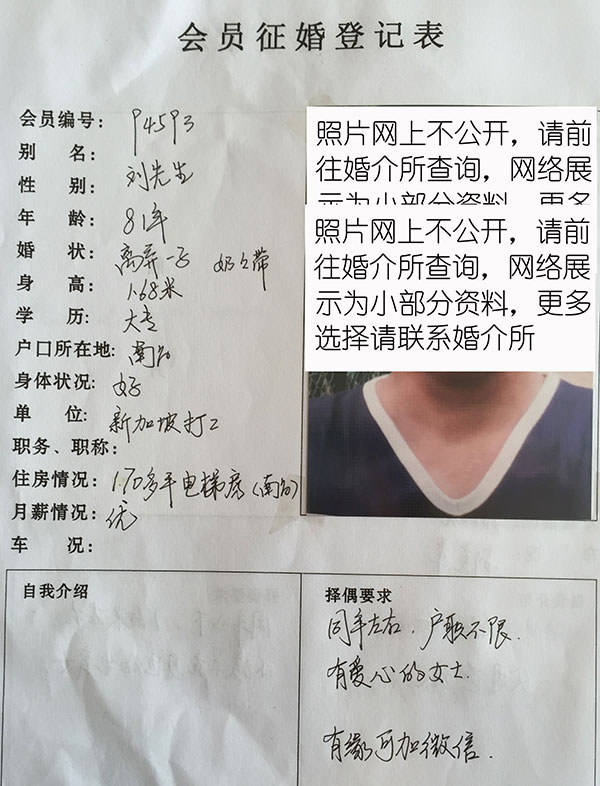 会员征婚登记表
会员编号: 94593
别 名: 刘先生
性 别:
年 龄: 81年
婚 状: 离异一子 奶奶带
身 高: 1.68米
学 历: 大专
户口所在地: 南
身体状况: 好
单 位: 新加坡打工
职务、职称:
住房情况: 170多平电梯房(南)
月薪情况: 优
车 况:
照片网上不公开，请前
往婚介所查询，网络展
示为小部分资料，更多
照片网上不公开，请前
往婚介所查询，网络展
示为小部分资料，更多
选择请联系婚介所
自我介绍
择偶要求
同年左右. 户职不限.
有爱心的女士.
有缘可加微信.